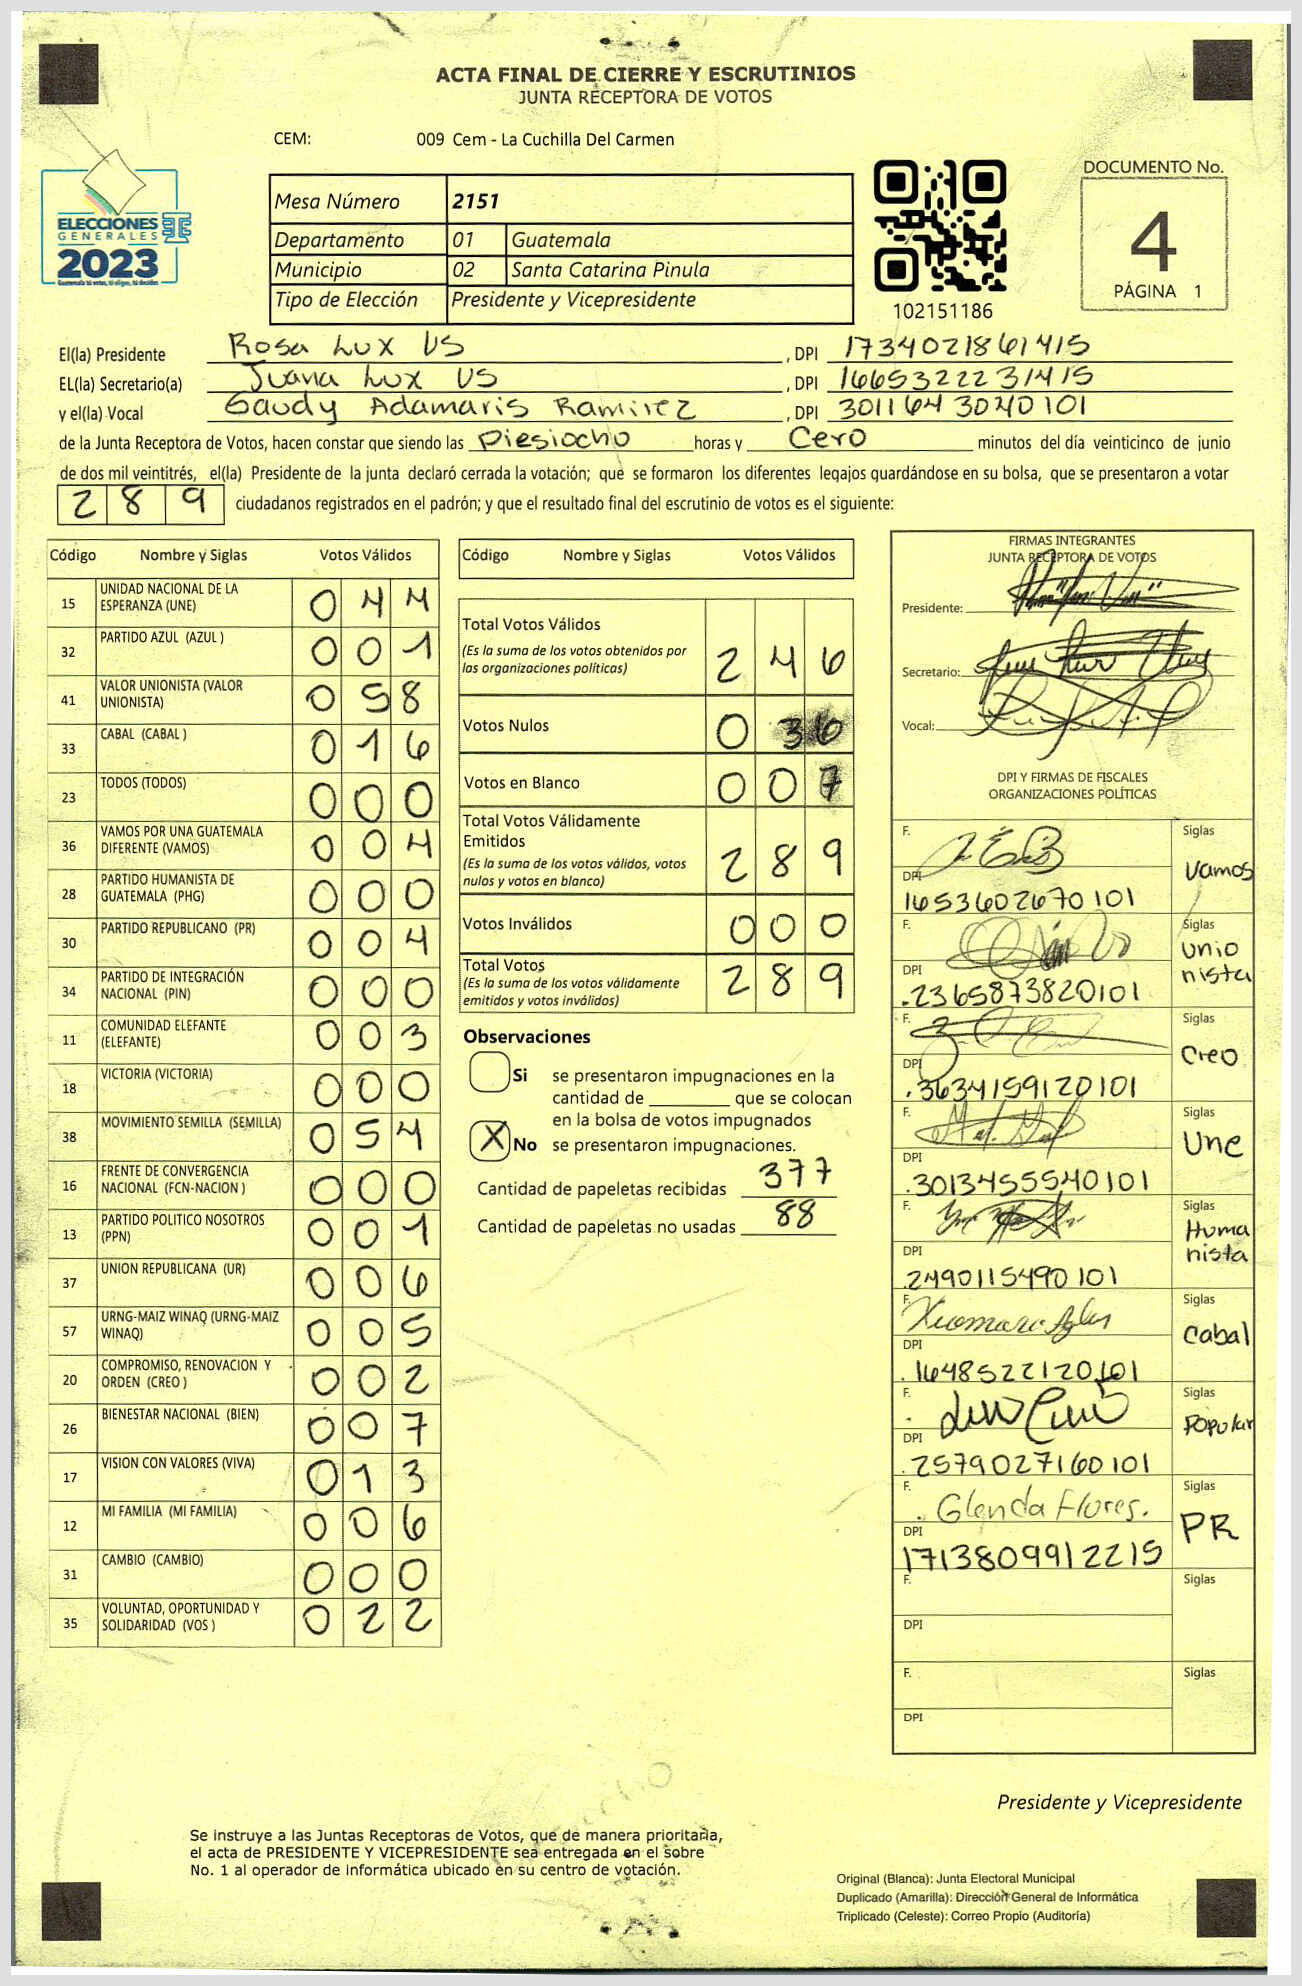 ACTA FINAL DE CIERRE Y ESCRUTINIOS
JUNTA RECEPTORA DE VOTOS
CEM: 009 Cem - La Cuchilla Del Carmen
ELECCIONES
GENERALES
2023
Guatemala tú votas, tú eliges, tú decides
Mesa Número 2151
Departamento 01 Guatemala
Municipio 02 Santa Catarina Pinula
Tipo de Elección Presidente y Vicepresidente
102151186
DOCUMENTO No.
4
PÁGINA 1
El(la) Presidente Rosa Lux US , DPI 1734021861415
EL(la) Secretario(a) Juana Lux US , DPI 1665322231415
y el(la) Vocal Gaudy Adamaris Ramirez , DPI 3011643040101
de la Junta Receptora de Votos, hacen constar que siendo las Diesiocho horas y Cero minutos del día veinticinco de junio
de dos mil veintitrés, el(la) Presidente de la junta declaró cerrada la votación; que se formaron los diferentes legajos guardándose en su bolsa, que se presentaron a votar
289 ciudadanos registrados en el padrón; y que el resultado final del escrutinio de votos es el siguiente:
Código Nombre y Siglas Votos Válidos
15 UNIDAD NACIONAL DE LA
ESPERANZA (UNE) 044
32 PARTIDO AZUL (AZUL ) 001
41 VALOR UNIONISTA (VALOR
UNIONISTA) 058
33 CABAL (CABAL ) 016
23 TODOS (TODOS) 000
36 VAMOS POR UNA GUATEMALA
DIFERENTE (VAMOS) 004
28 PARTIDO HUMANISTA DE
GUATEMALA (PHG) 000
30 PARTIDO REPUBLICANO (PR) 004
34 PARTIDO DE INTEGRACIÓN
NACIONAL (PIN) 000
11 COMUNIDAD ELEFANTE
(ELEFANTE) 003
18 VICTORIA (VICTORIA) 000
38 MOVIMIENTO SEMILLA (SEMILLA) 054
16 FRENTE DE CONVERGENCIA
NACIONAL (FCN-NACION ) 000
13 PARTIDO POLITICO NOSOTROS
(PPN) 001
37 UNION REPUBLICANA (UR) 006
57 URNG-MAIZ WINAQ (URNG-MAIZ
WINAQ) 005
20 COMPROMISO, RENOVACION Y
ORDEN (CREO ) 002
26 BIENESTAR NACIONAL (BIEN) 007
17 VISION CON VALORES (VIVA) 013
12 MI FAMILIA (MI FAMILIA) 006
31 CAMBIO (CAMBIO) 000
35 VOLUNTAD, OPORTUNIDAD Y
SOLIDARIDAD (VOS ) 022
Código Nombre y Siglas Votos Válidos
Total Votos Válidos
(Es la suma de los votos obtenidos por
las organizaciones políticas) 246
Votos Nulos 036
Votos en Blanco 007
Total Votos Válidamente
Emitidos
(Es la suma de los votos válidos, votos
nulos y votos en blanco) 289
Votos Inválidos 000
Total Votos
(Es la suma de los votos válidamente
emitidos y votos inválidos) 289
Observaciones
Si se presentaron impugnaciones en la
cantidad de que se colocan
en la bolsa de votos impugnados
X No se presentaron impugnaciones.
Cantidad de papeletas recibidas 377
Cantidad de papeletas no usadas 88
FIRMAS INTEGRANTES
JUNTA RECEPTORA DE VOTOS
Presidente:
Secretario:
Vocal:
DPI Y FIRMAS DE FISCALES
ORGANIZACIONES POLÍTICAS
F. Siglas
Vamos
DPI
1653602670101
F. Siglas
Unio
nista
DPI
.2365873820101
F. Siglas
Creo
DPI
.3634159120101
F. Siglas
Une
DPI
.3013455540101
F. Siglas
Huma
nista
DPI
.2490115490101
F. Siglas
Cabal
DPI
.1648522120101
F. Siglas
Popular
DPI
.2579027160101
F. Glenda Flores. Siglas
PR
DPI
1713809912215
F. Siglas
DPI
F. Siglas
DPI
Presidente y Vicepresidente
Se instruye a las Juntas Receptoras de Votos, que de manera prioritaria,
el acta de PRESIDENTE Y VICEPRESIDENTE sea entregada en el sobre
No. 1 al operador de informática ubicado en su centro de votación.
Original (Blanca): Junta Electoral Municipal
Duplicado (Amarilla): Dirección General de Informática
Triplicado (Celeste): Correo Propio (Auditoría)